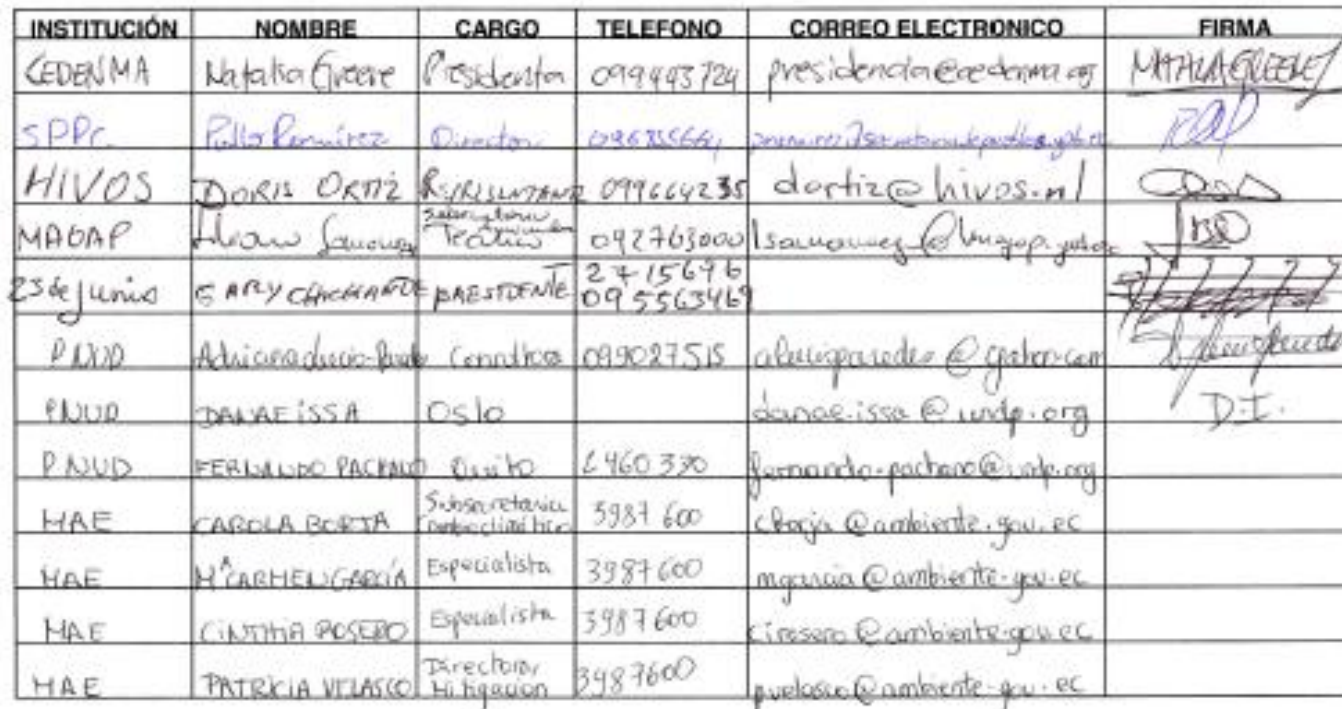 INSTITUCIÓN NOMBRE CARGO TELEFONO CORREO ELECTRONICO FIRMA
CEDENMA Natalia Greene Presidenta 099443724 presidencia@cedenma.org NATALIAGREENE
SPPC. Ramírez Director
HIVOS DORIS ORTIZ 099664235 dortiz@hivos.nl
MAGAP 092763000
23 de junio GARY PRESIDENTE 2715696
095563469
PNUD Adriana Lucio-Paredes Consultora 099027515
PNUD DANAE ISSA Oslo danae.issa@undp.org D.I.
PNUD FERNANDO PACHANO Quito 2460330 fernando.pachano@undp.org
MAE CAROLA BORJA Subsecretaria
Cambio climático 3987600 cborja@ambiente.gov.ec
MAE Mª CARMEN GARCÍA Especialista 3987600 mgarcia@ambiente.gov.ec
MAE CINTHIA ROSERO Especialista 3987600 cirosero@ambiente.gov.ec
MAE PATRICIA VELASCO Directora,
Mitigacion 3987600 pvelasco@ambiente.gov.ec